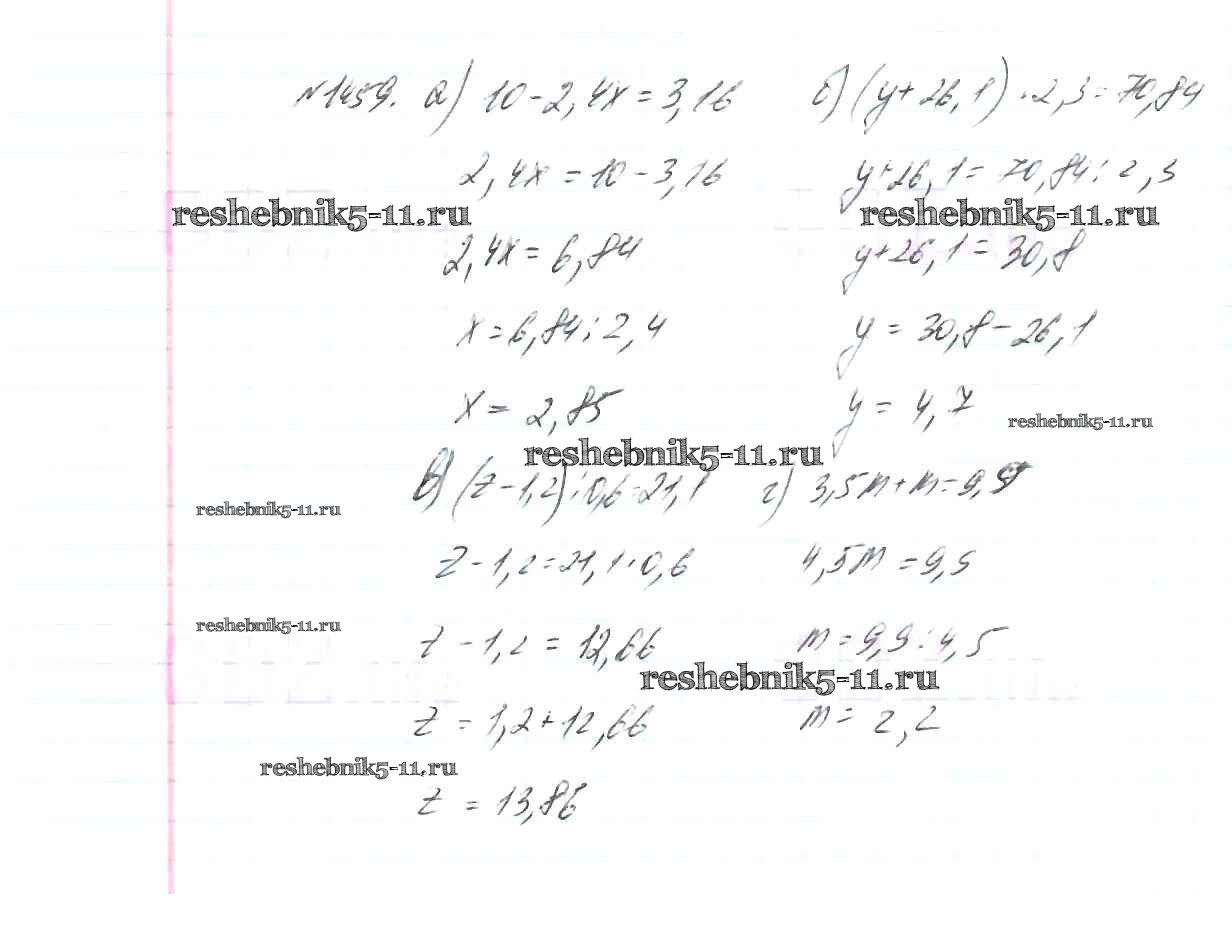 №1459. а) 10-2,4x=3,16
2,4x=10-3,16
2,4x=6,84
x=6,84:2,4
x=2,85
б) (y+26,1)·2,3=70,84
y+26,1=70,84:2,3
y+26,1=30,8
y=30,8-26,1
y=4,7
в) (z-1,2):0,6=21,1
z-1,2=21,1·0,6
z-1,2=12,66
z=1,2+12,66
z=13,86
г) 3,5m+m=9,9
4,5m=9,9
m=9,9:4,5
m=2,2
reshebnik5-11.ru
reshebnik5-11.ru
reshebnik5-11.ru
reshebnik5-11.ru
reshebnik5-11.ru
reshebnik5-11.ru
reshebnik5-11.ru
reshebnik5-11.ru